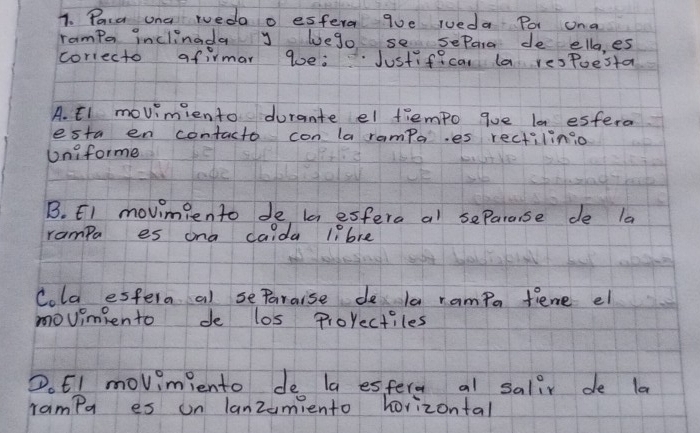 1. Para una rueda o esfera que rueda Por una
rampa inclinada y luego se separa de ella, es
correcto afirmar que: Justificar la respuesta
A. El movimiento durante el tiempo que la esfera
esta en contacto con la rampa es rectilinio
Uniforme
B. El movimiento de la esfera al separarse de la
rampa es una caida libre
C. la esfera al separarse de la rampa tiene el
movimiento de los Proyectiles
D. El movimiento de la esfera al salir de la
rampa es un lanzamiento horizontal